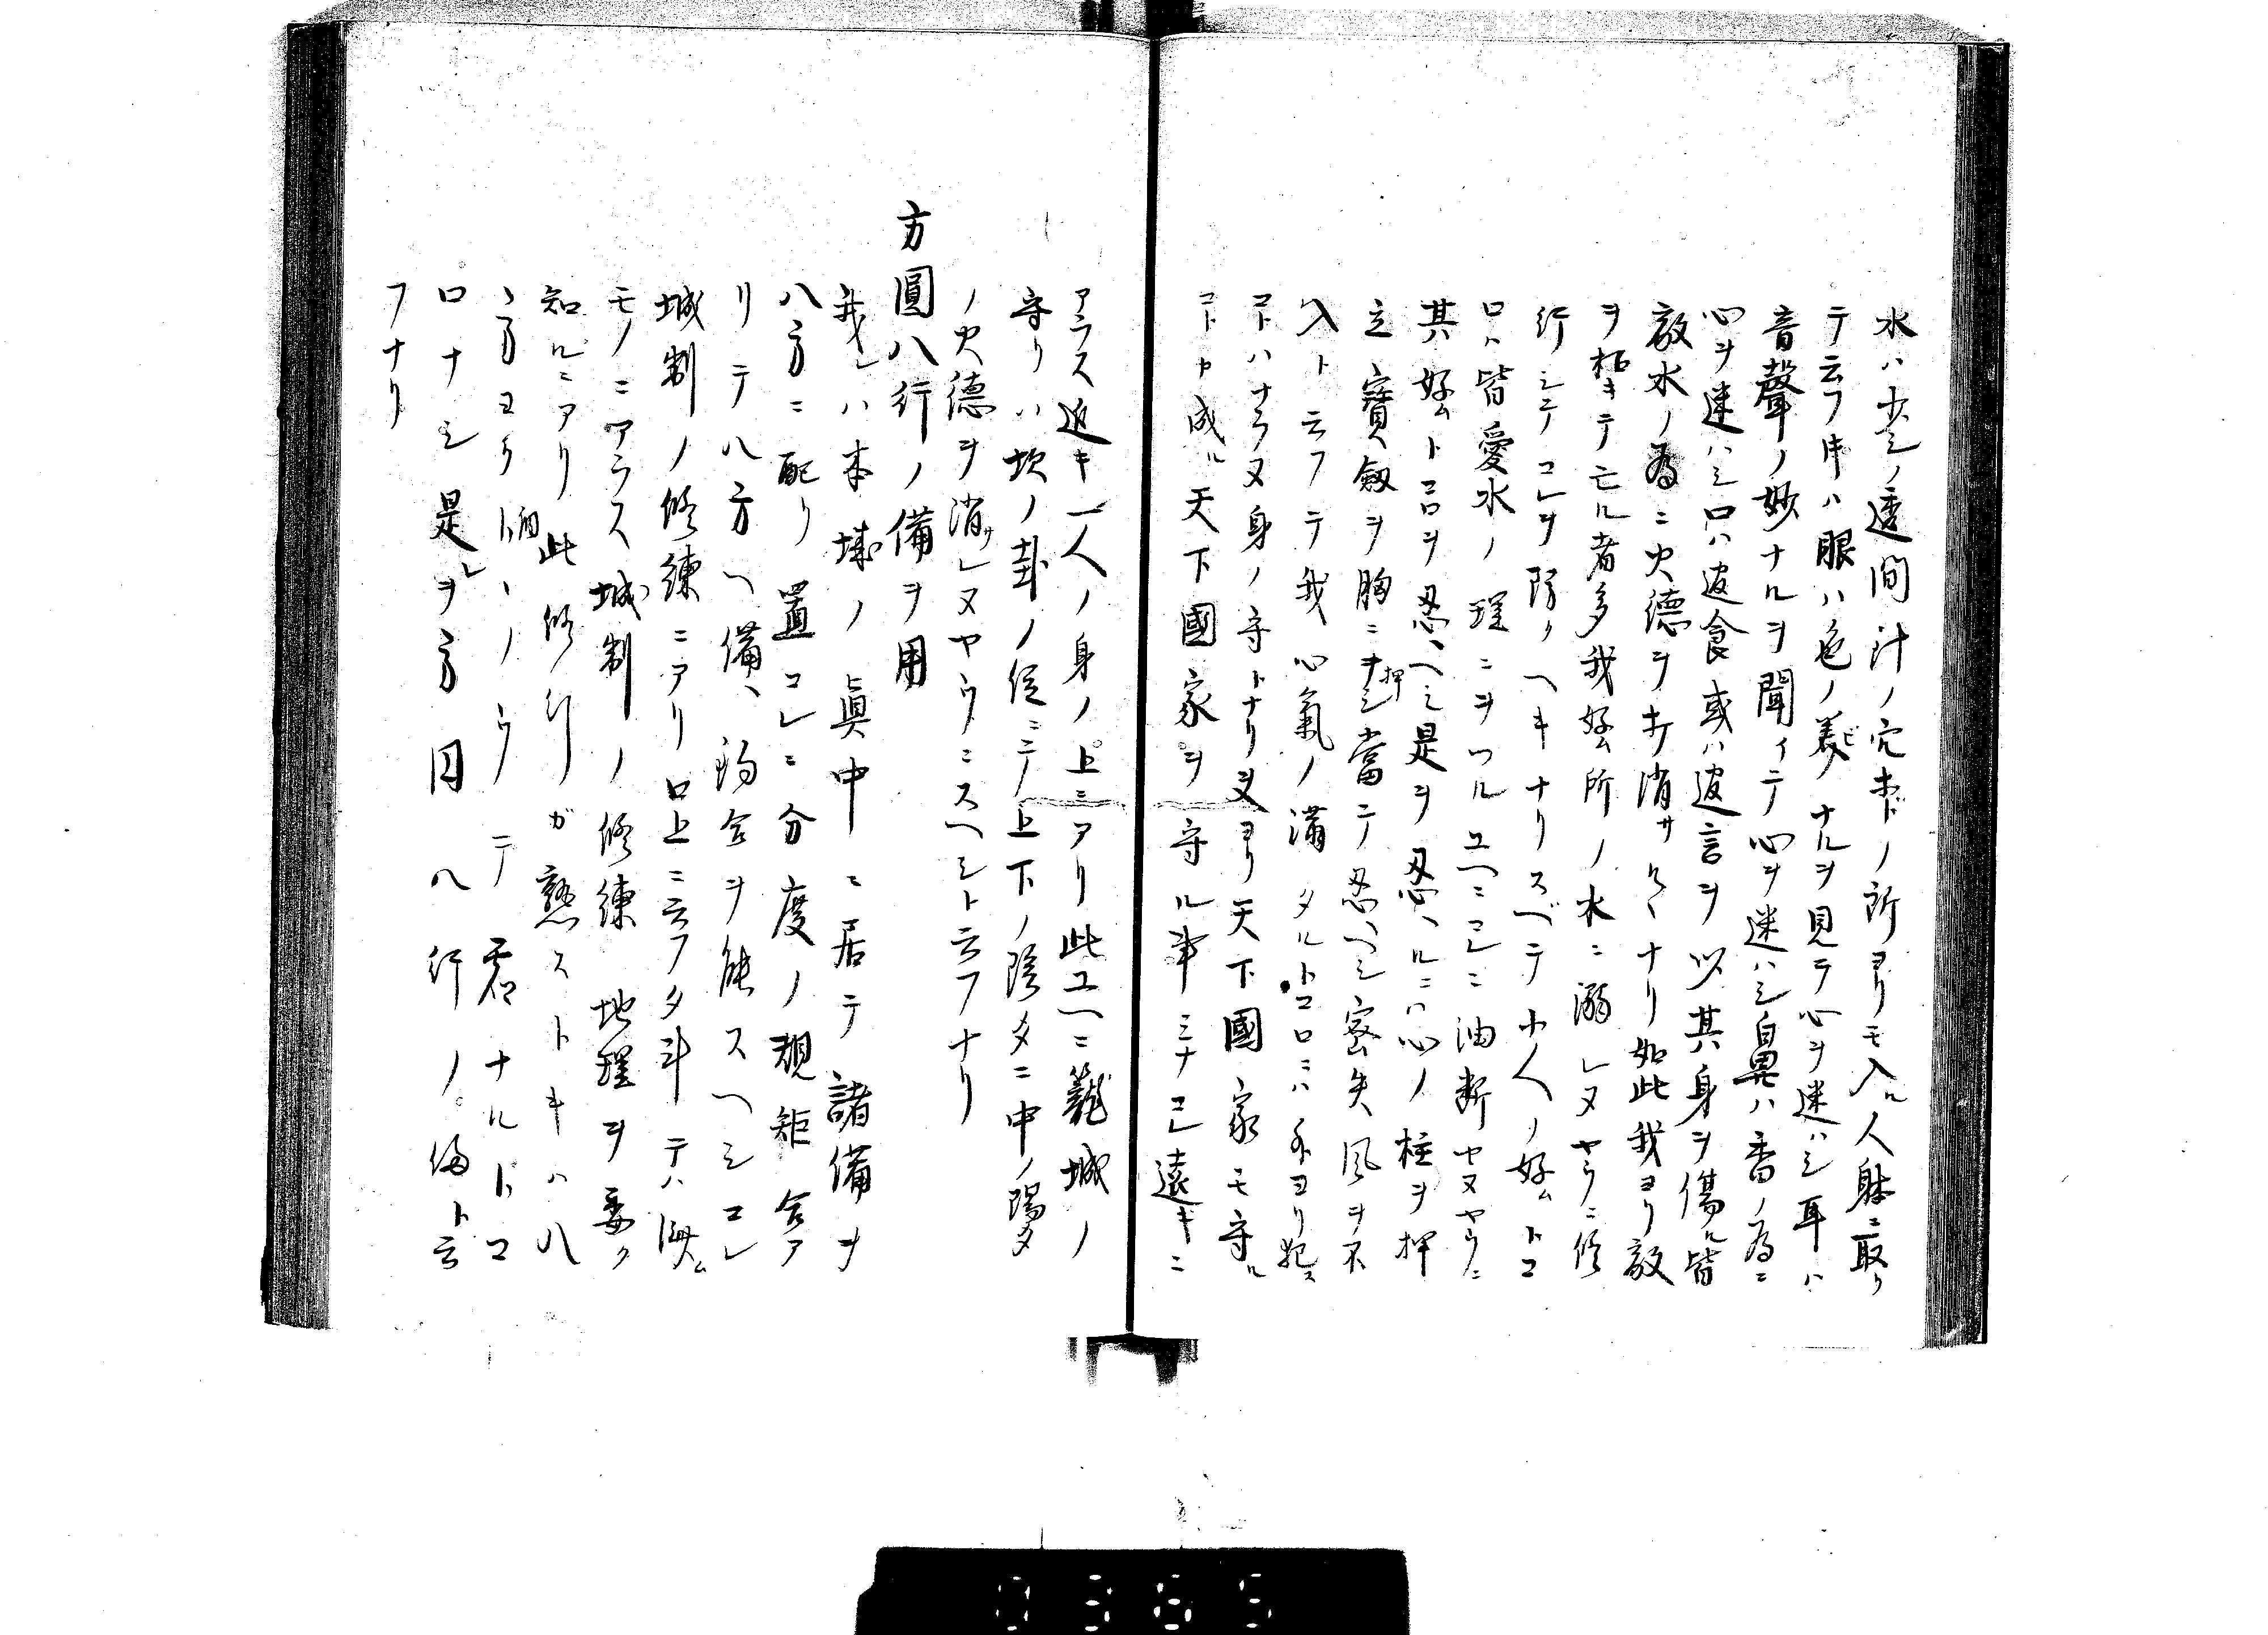 水ハ少シノ透間汁ノ穴ホドノ所ヨリモ入ル人躰ニ取リ
テ云フ時ハ眼ハ色ノ美ナルヲ見テ心ヲ迷ハシ耳ハ
音聲ノ妙ナルヲ聞イテ心ヲ迷ハシ鼻ハ香ノ為ニ
心ヲ迷ハシ口ハ過食或ハ過言ヲ以其身ヲ傷ル皆
敵水ノ為ニ火德ヲキ消サルヽナリ如此我ヨリ敵
ヲ招キテ亡ル者多シ我好ム所ノ水ニ溺レヌヤウニ修
行シテコレヲ防クヘキナリスベテ小人ノ好ムトコ
ロハ皆愛水ノ理ニヲツルユヘニコレニ油断セヌヤウニ
其好ムトコロヲ忍ヘシ是ヲ忍ヽルニハ心ノ柱ヲ押
立寶劔ヲ胸ニヲシ當テ忍ヘシ密矢風ヲ不
入ト云フテ我心氣ノ滿タルトコロニハ外ヨリ犯ス
コトハナラヌ身ノ守トナリ又ヨリ天下國家モ守ル
コトカ成ル天下國家ヲ守ル事ミナコレ遠キニ
アラス近キ一人ノ身ノ上ニアリ此ユヘニ籠城ノ
守リハ坎ノ卦ノ侭ニテ上下ノ陰タニ中ノ陽タ
ノ火德ヲ消サレヌヤウニスヘシト云フナリ
方圓八行ノ備ヲ用
我レハ本城ノ眞中ニ居テ諸備ヲ
八方ニ配リ置コレニ分度ノ規矩合ア
リテ八方ヘ備ヽ釣合ヲ能スヘシコレ
城制ノ修練ニアリ口上ニ云フタ斗テハ濟ム
モノニアラス城制ノ修練地理ヲ委ク
知ルニアリ此修行ガ熟ストキハ八
方ヨリ向トノウテ君ナルトコ
ロナシ是レヲ方円八行ノ備ト云
フナリ
0365